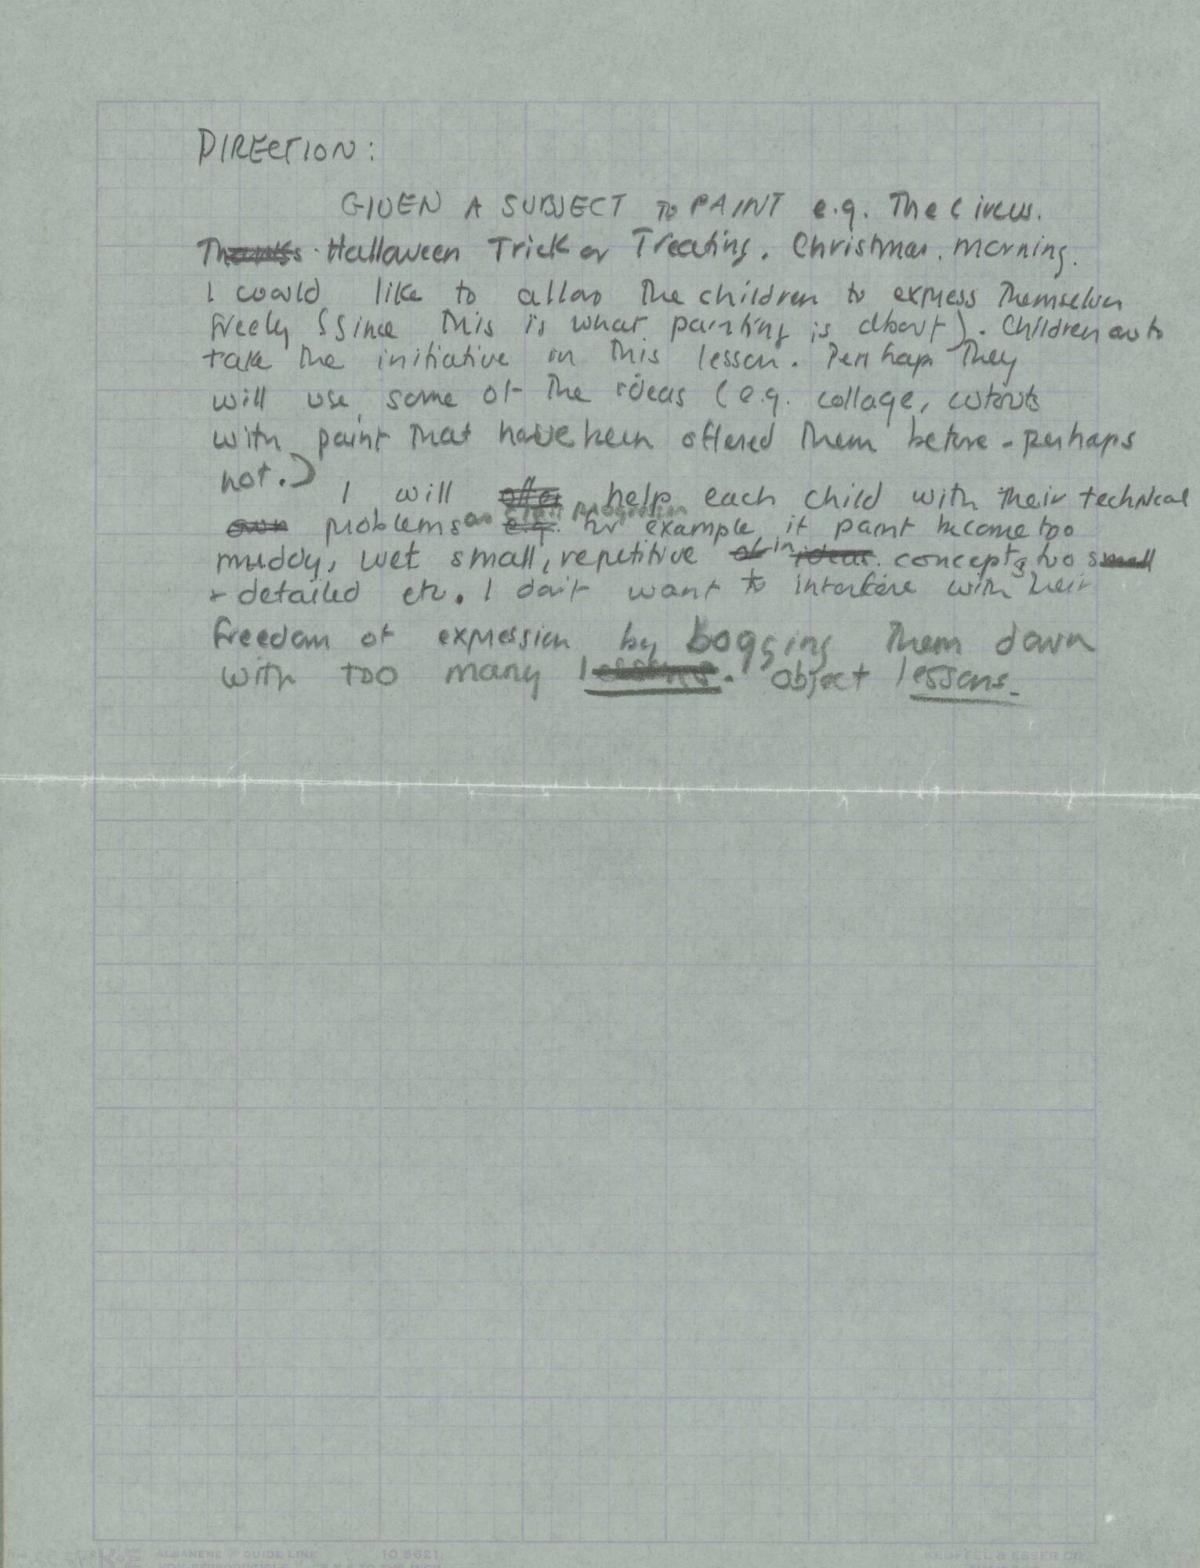 DIRECTION:
GIVEN A SUBJECT TO PAINT e.g. The Circus.
Halloween Trick or Treating. Christmas. morning.
I would like to allow the children to express themselves
freely (since this is what painting is about). Children are to
take the initiative in this lesson. Perhaps they
will use some of the ideas (e.g. collage, cutouts
with paint that have been offered them before - perhaps
not.)
I will help each child with their technical
problems for example if paint become too
muddy, wet small, repetitive concepts too small
+ detailed etc. I don't want to interfere with their
freedom of expression by bogging them down
with too many lessons. object lessons.
ALBANENE GUIDE LINE 10 5621